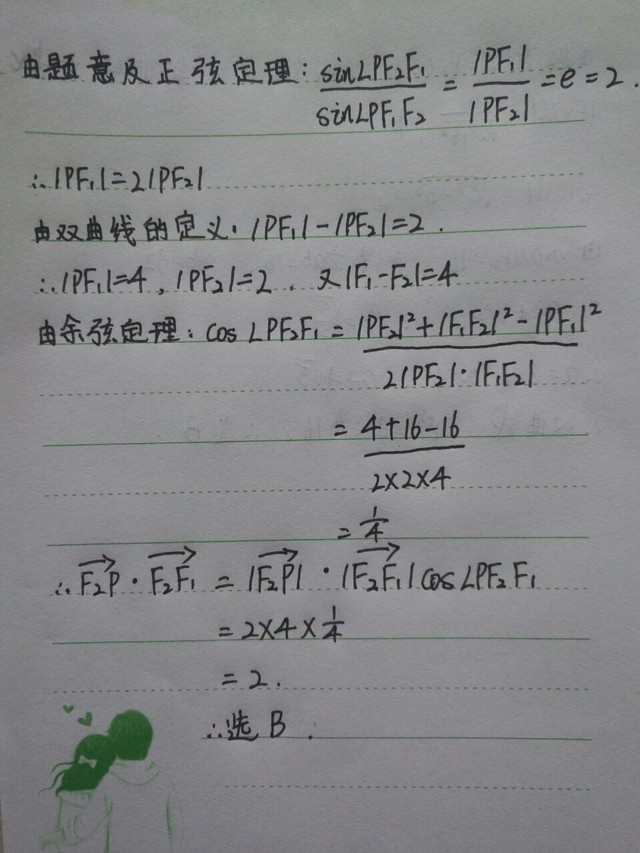 由题意及正弦定理: sin∠PF₂F₁ / sin∠PF₁F₂ = |PF₁| / |PF₂| = e = 2.
∴|PF₁|=2|PF₂|
由双曲线的定义. |PF₁|-|PF₂|=2.
∴|PF₁|=4, |PF₂|=2. 又|F₁-F₂|=4
由余弦定理: cos∠PF₂F₁ = |PF₂|²+|F₁F₂|²-|PF₁|² / 2|PF₂|·|F₁F₂|
= 4+16-16 / 2×2×4
= 1/4
∴F₂P→ · F₂F₁→ = |F₂P→| · |F₂F₁→| cos∠PF₂F₁
= 2×4×1/4
= 2.
∴选 B.